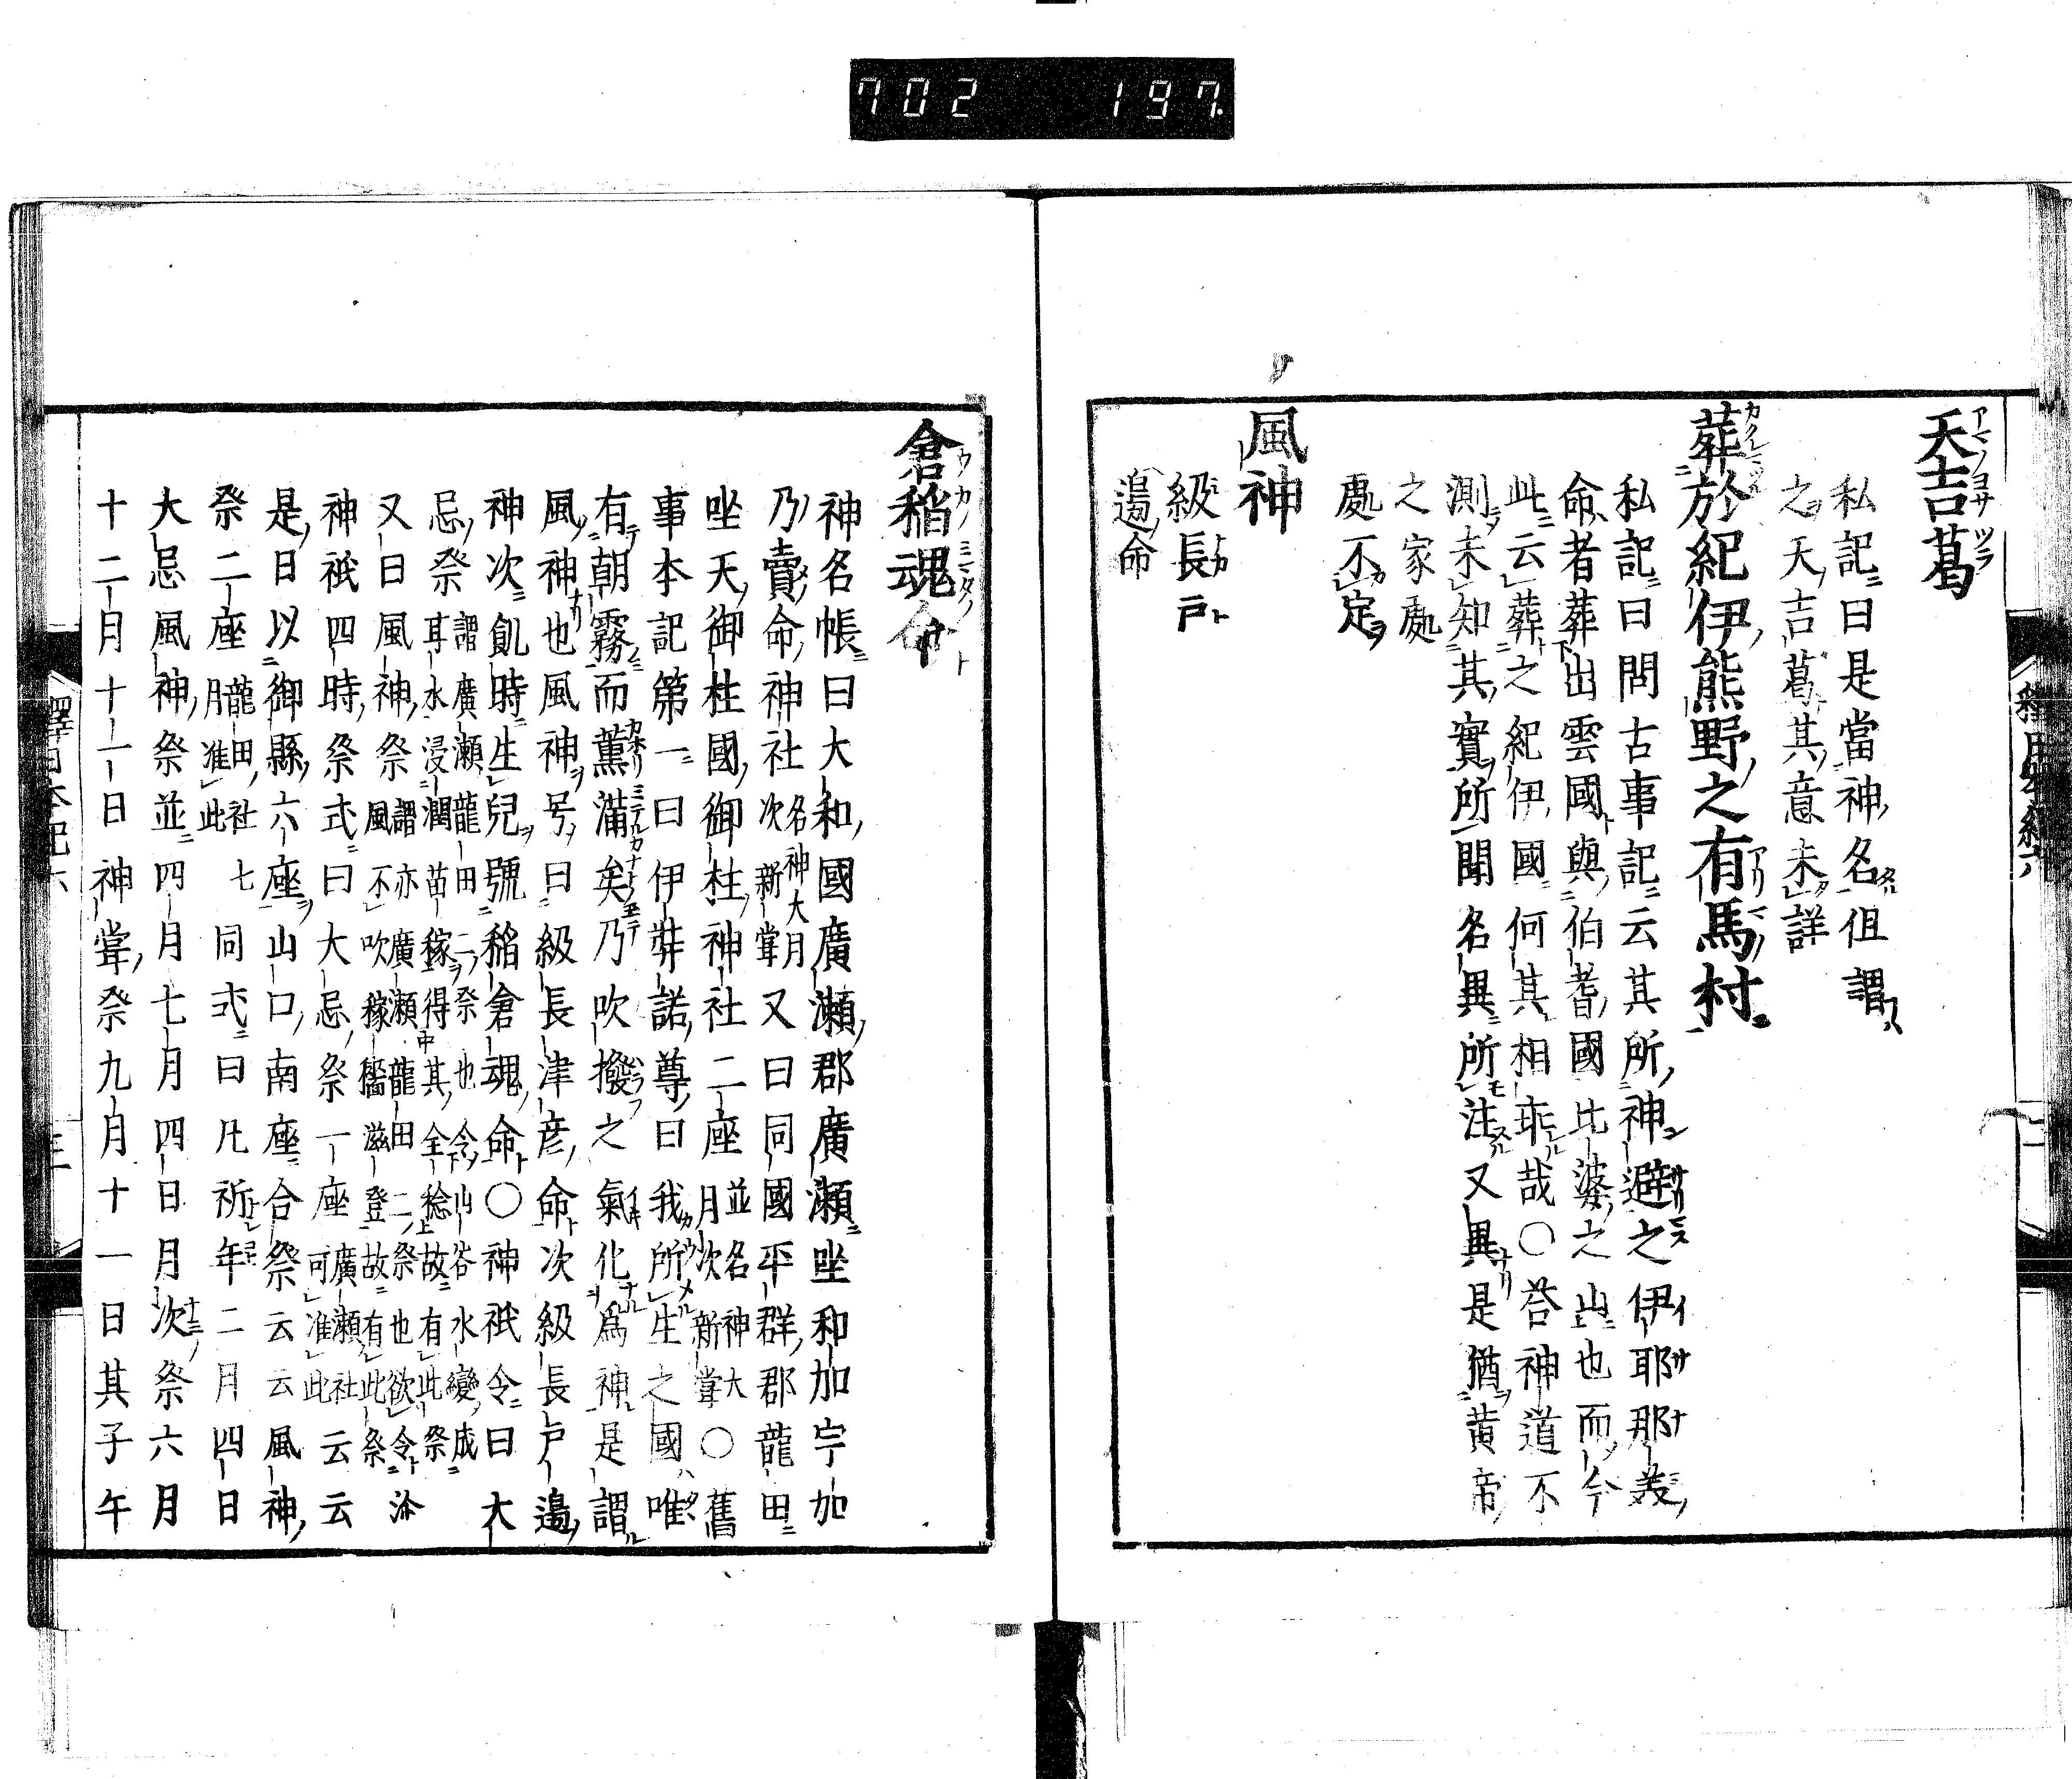 702 197.
天吉葛
私記曰是當神名伹謂
之天吉葛其意未詳
葬於紀伊熊野之有馬村
私記曰問古事記云其所神避之伊耶那美
命者葬出雲國與伯耆國比婆之山也而今
此云葬之紀伊國何其相乖哉○荅神道不
測未知其實所聞名異所注又異是猶黄帝
之家處
處不定
風神
級長戸
邉命
倉稲魂命
神名帳曰大和國廣瀬郡廣瀬坐和加宇加
乃賣命神社名神大月次新甞又曰同國平群郡龍田
坐天御柱國御柱神社二座並名神大月次新甞○舊
事本記第一曰伊弉諾尊曰我所生之國唯
有朝霧而薫満矣乃吹撥之氣化爲神是謂
風神也風神号曰級長津彦命次級長戸邉
神次飢時生兒號稲倉魂命○神祇令曰大
忌祭謂廣瀬龍田二祭也令山谷水變成耳水浸潤苗稼得其全稔故有此祭
又曰風神祭謂亦廣瀬龍田二祭也欲令沴風不吹稼穡滋登故有此祭
神祇四時祭式曰大忌祭一座廣瀬社可准此云云
是日以御縣六座山口南座合祭云云風神
祭二座龍田社七月准此同式曰凡祈年二月四日
大忌風神祭並四月七月四日月次祭六月
十二月十一日神甞祭九月十一日其子午